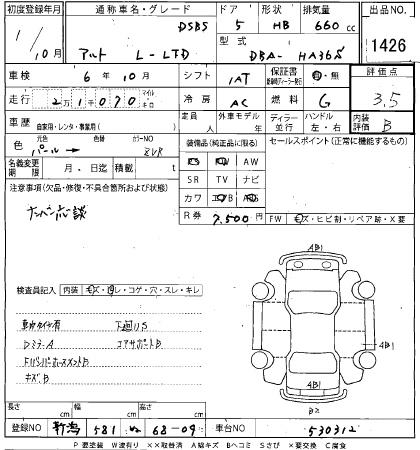 初度登録年月 通称車名・グレード ドア 形状 排気量 出品NO
DSBS 5 HB 660 cc
1/10月 アルト L-LTD 型式 DBA-HA36S 1426
車検 6年10月 シフト IAT 保証書 有・無 評価点
走行 2万1070 マイル キロ 冷房 AC 燃料 G 3.5
車歴 自家用・レンタ・事業用( ) 定員 人 外車モデル 年 ディーラー 並行 ハンドル 左・右 内装評価 B
色 元色 パール 色替 カラーNO ZVR 装備品(純正品に限る) セールスポイント(正常に機能するもの)
名義変更期限 月 日迄 積載 t AW
SR TV ナビ
注意事項(欠品・修復・不具合箇所および状態) カワ
R券 7,500円 FW キズ・ヒビ割・リペア跡・X要
検査員記入 内装 キズ・コゲ・穴・スレ・キレ
4B1
DミラーA コアサポートB 4B1
キズB 4B1
B2
長さ cm 幅 cm 高さ cm
登録NO 新潟 581 68-09 車台NO 530312
P 要塗装 W波有り ××取替済 A線キズ Bヘコミ Sさび ×要交換 C腐食